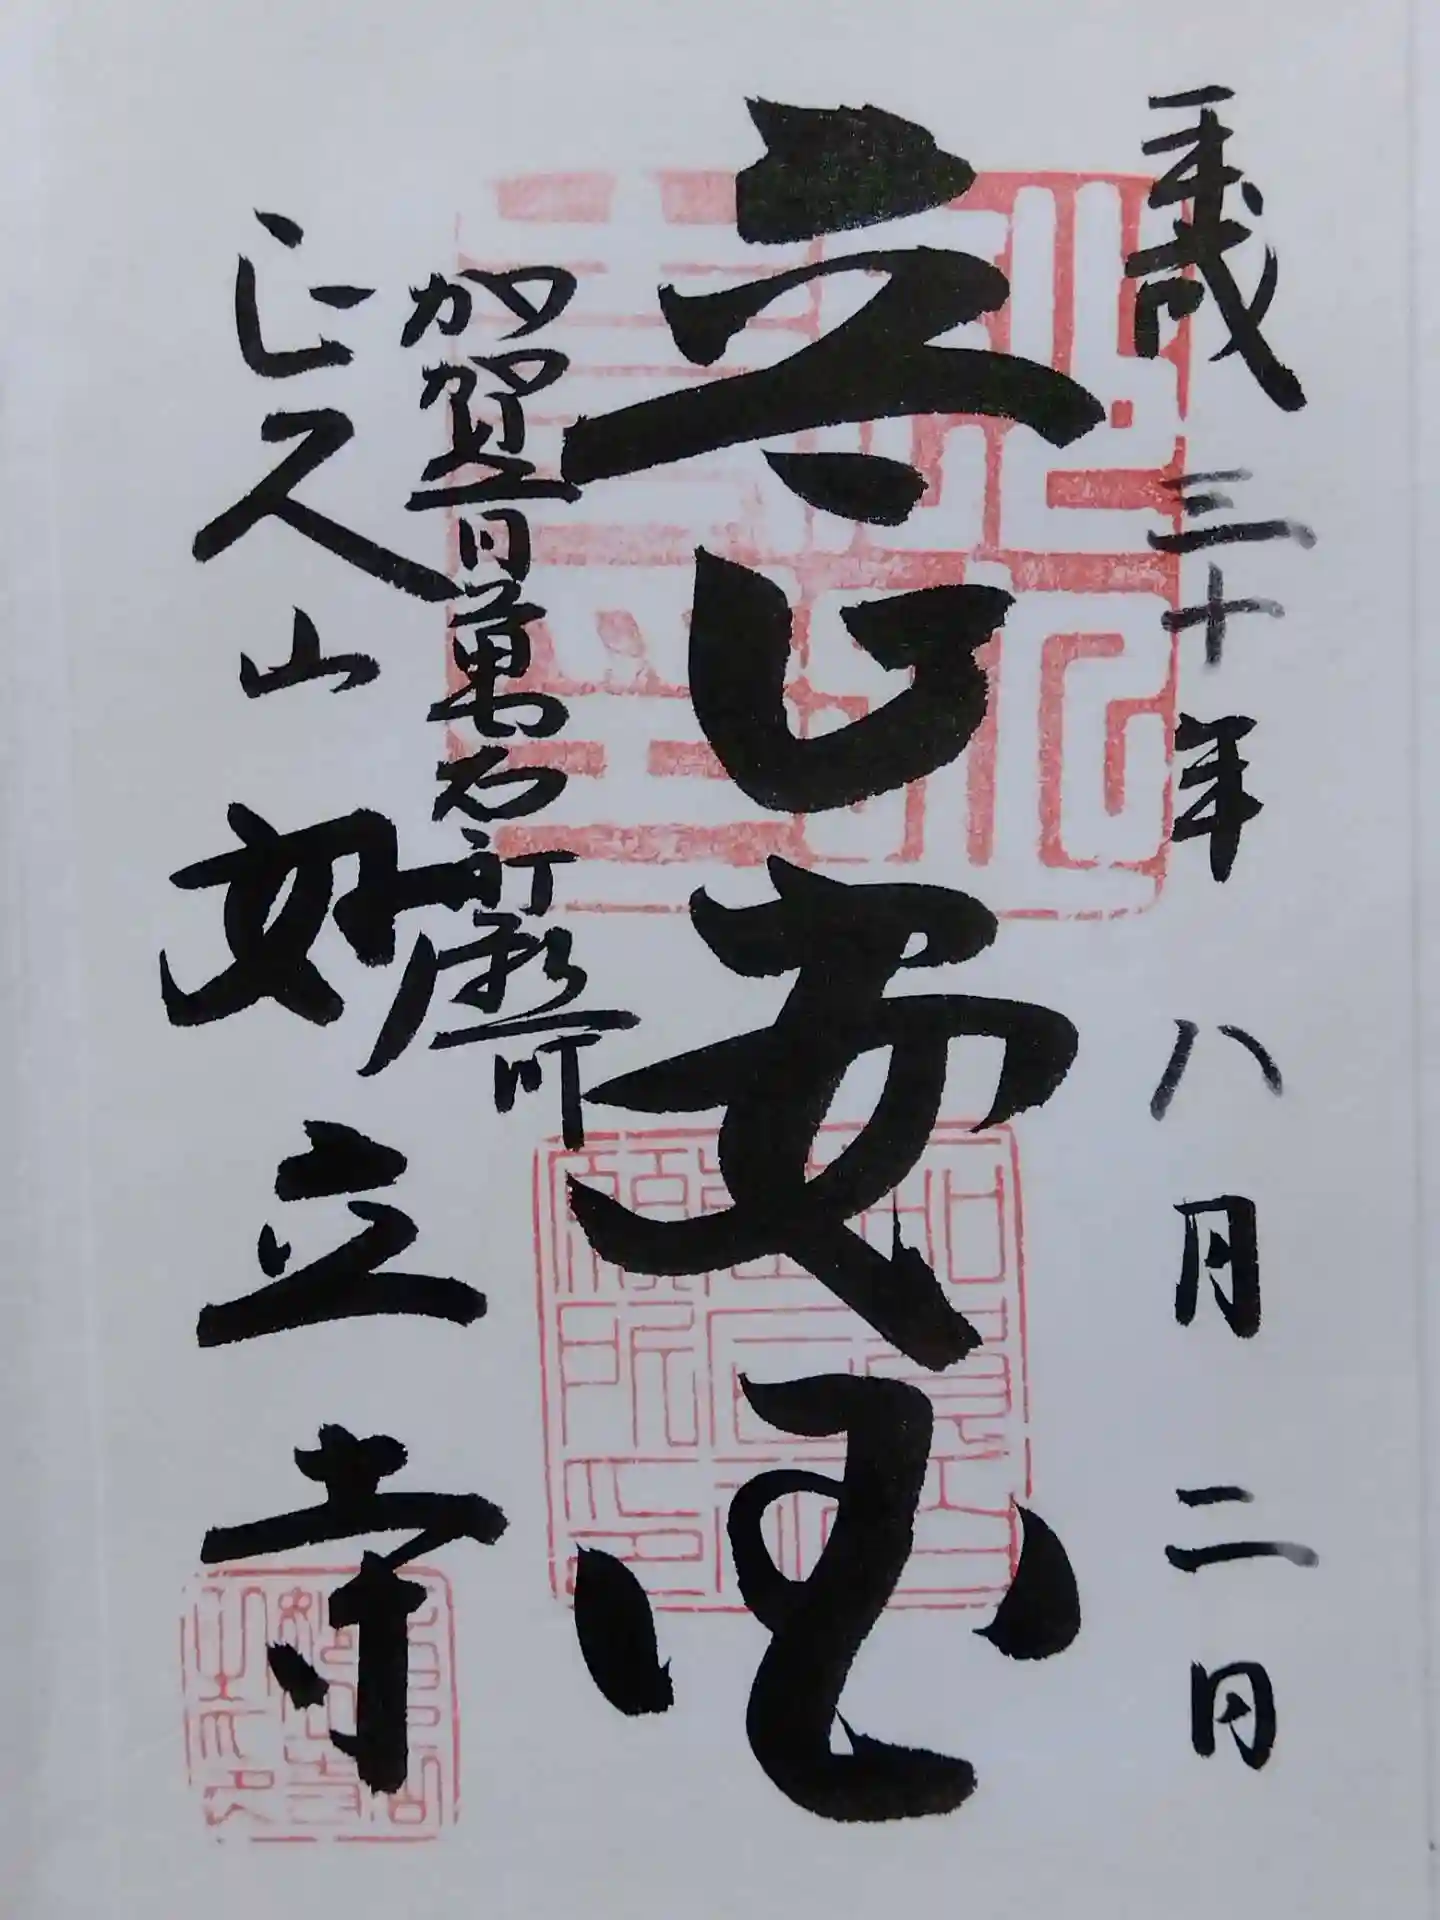 平成三十年八月二日
立正安国
加賀百萬石祈願所
正久山妙立寺